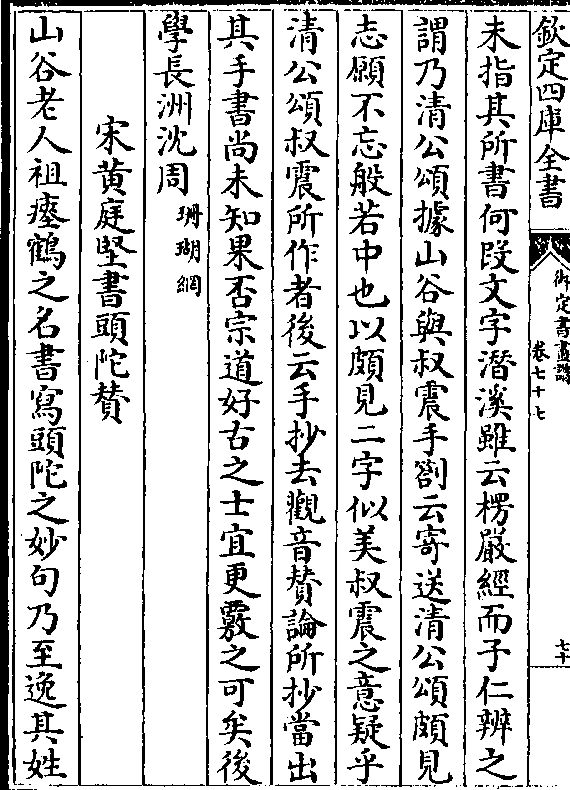 欽定四庫全書
御定書畫譜
卷七十七
七十
未指其所書何段文字潛溪雖云楞嚴經而子仁辨之
謂乃清公頌據山谷與叔震手劄云寄送清公頌頗見
志願不忘般若中也以頗見二字似美叔震之意疑乎
清公頌叔震所作者後云手抄去觀音賛論所抄當出
其手書尚未知果否宗道好古之士宜更覈之可矣後
學長洲沈周 珊瑚網
宋黄庭堅書頭陀賛
山谷老人祖瘞鶴之名書寫頭陀之妙句乃至逸其姓